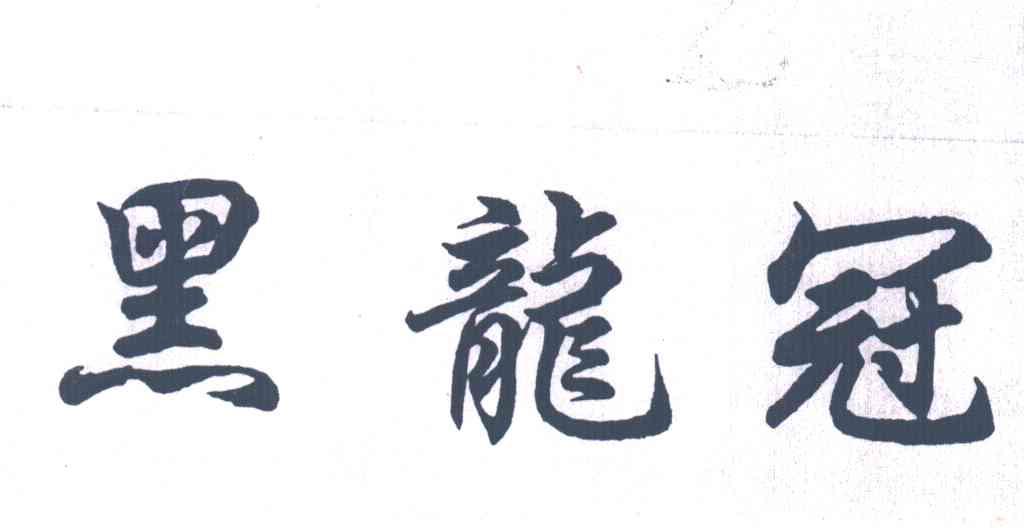 黑龍冠